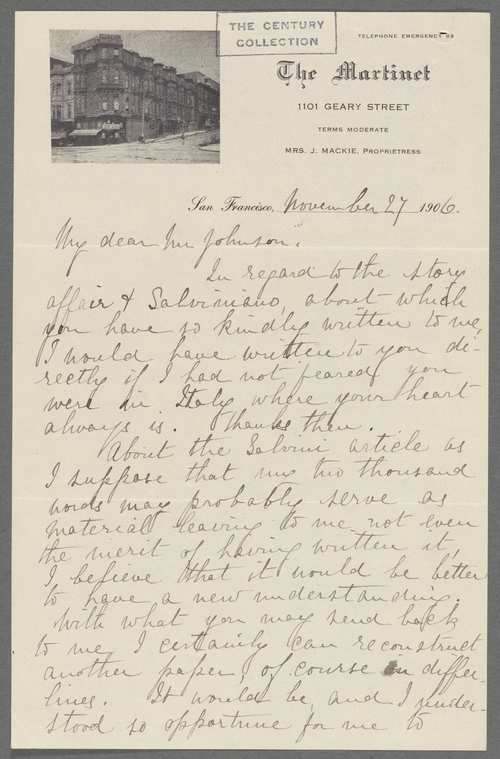 THE CENTURY
COLLECTION
TELEPHONE EMERGENCY 99
The Martinet
1101 GEARY STREET
TERMS MODERATE
MRS. J. MACKIE, PROPRIETRESS
San Francisco, November 27 1906.
My dear Mr Johnson:
In regard to the story
affair & Salviniano, about which
you have so kindly written to me,
I would have written to you di-
rectly if I had not feared you
were in Italy where your heart
always is. Thanks then.
About the Salvini article as
I suppose that my two thousand
words may probably serve as
material leaving to me not even
the merit of having written it,
I believe that it would be better
to have a new understanding.
With what you may send back
to me I certainly can reconstruct
another paper, of course in differ-
lines. It would be, and I under-
stood so opportune for me to